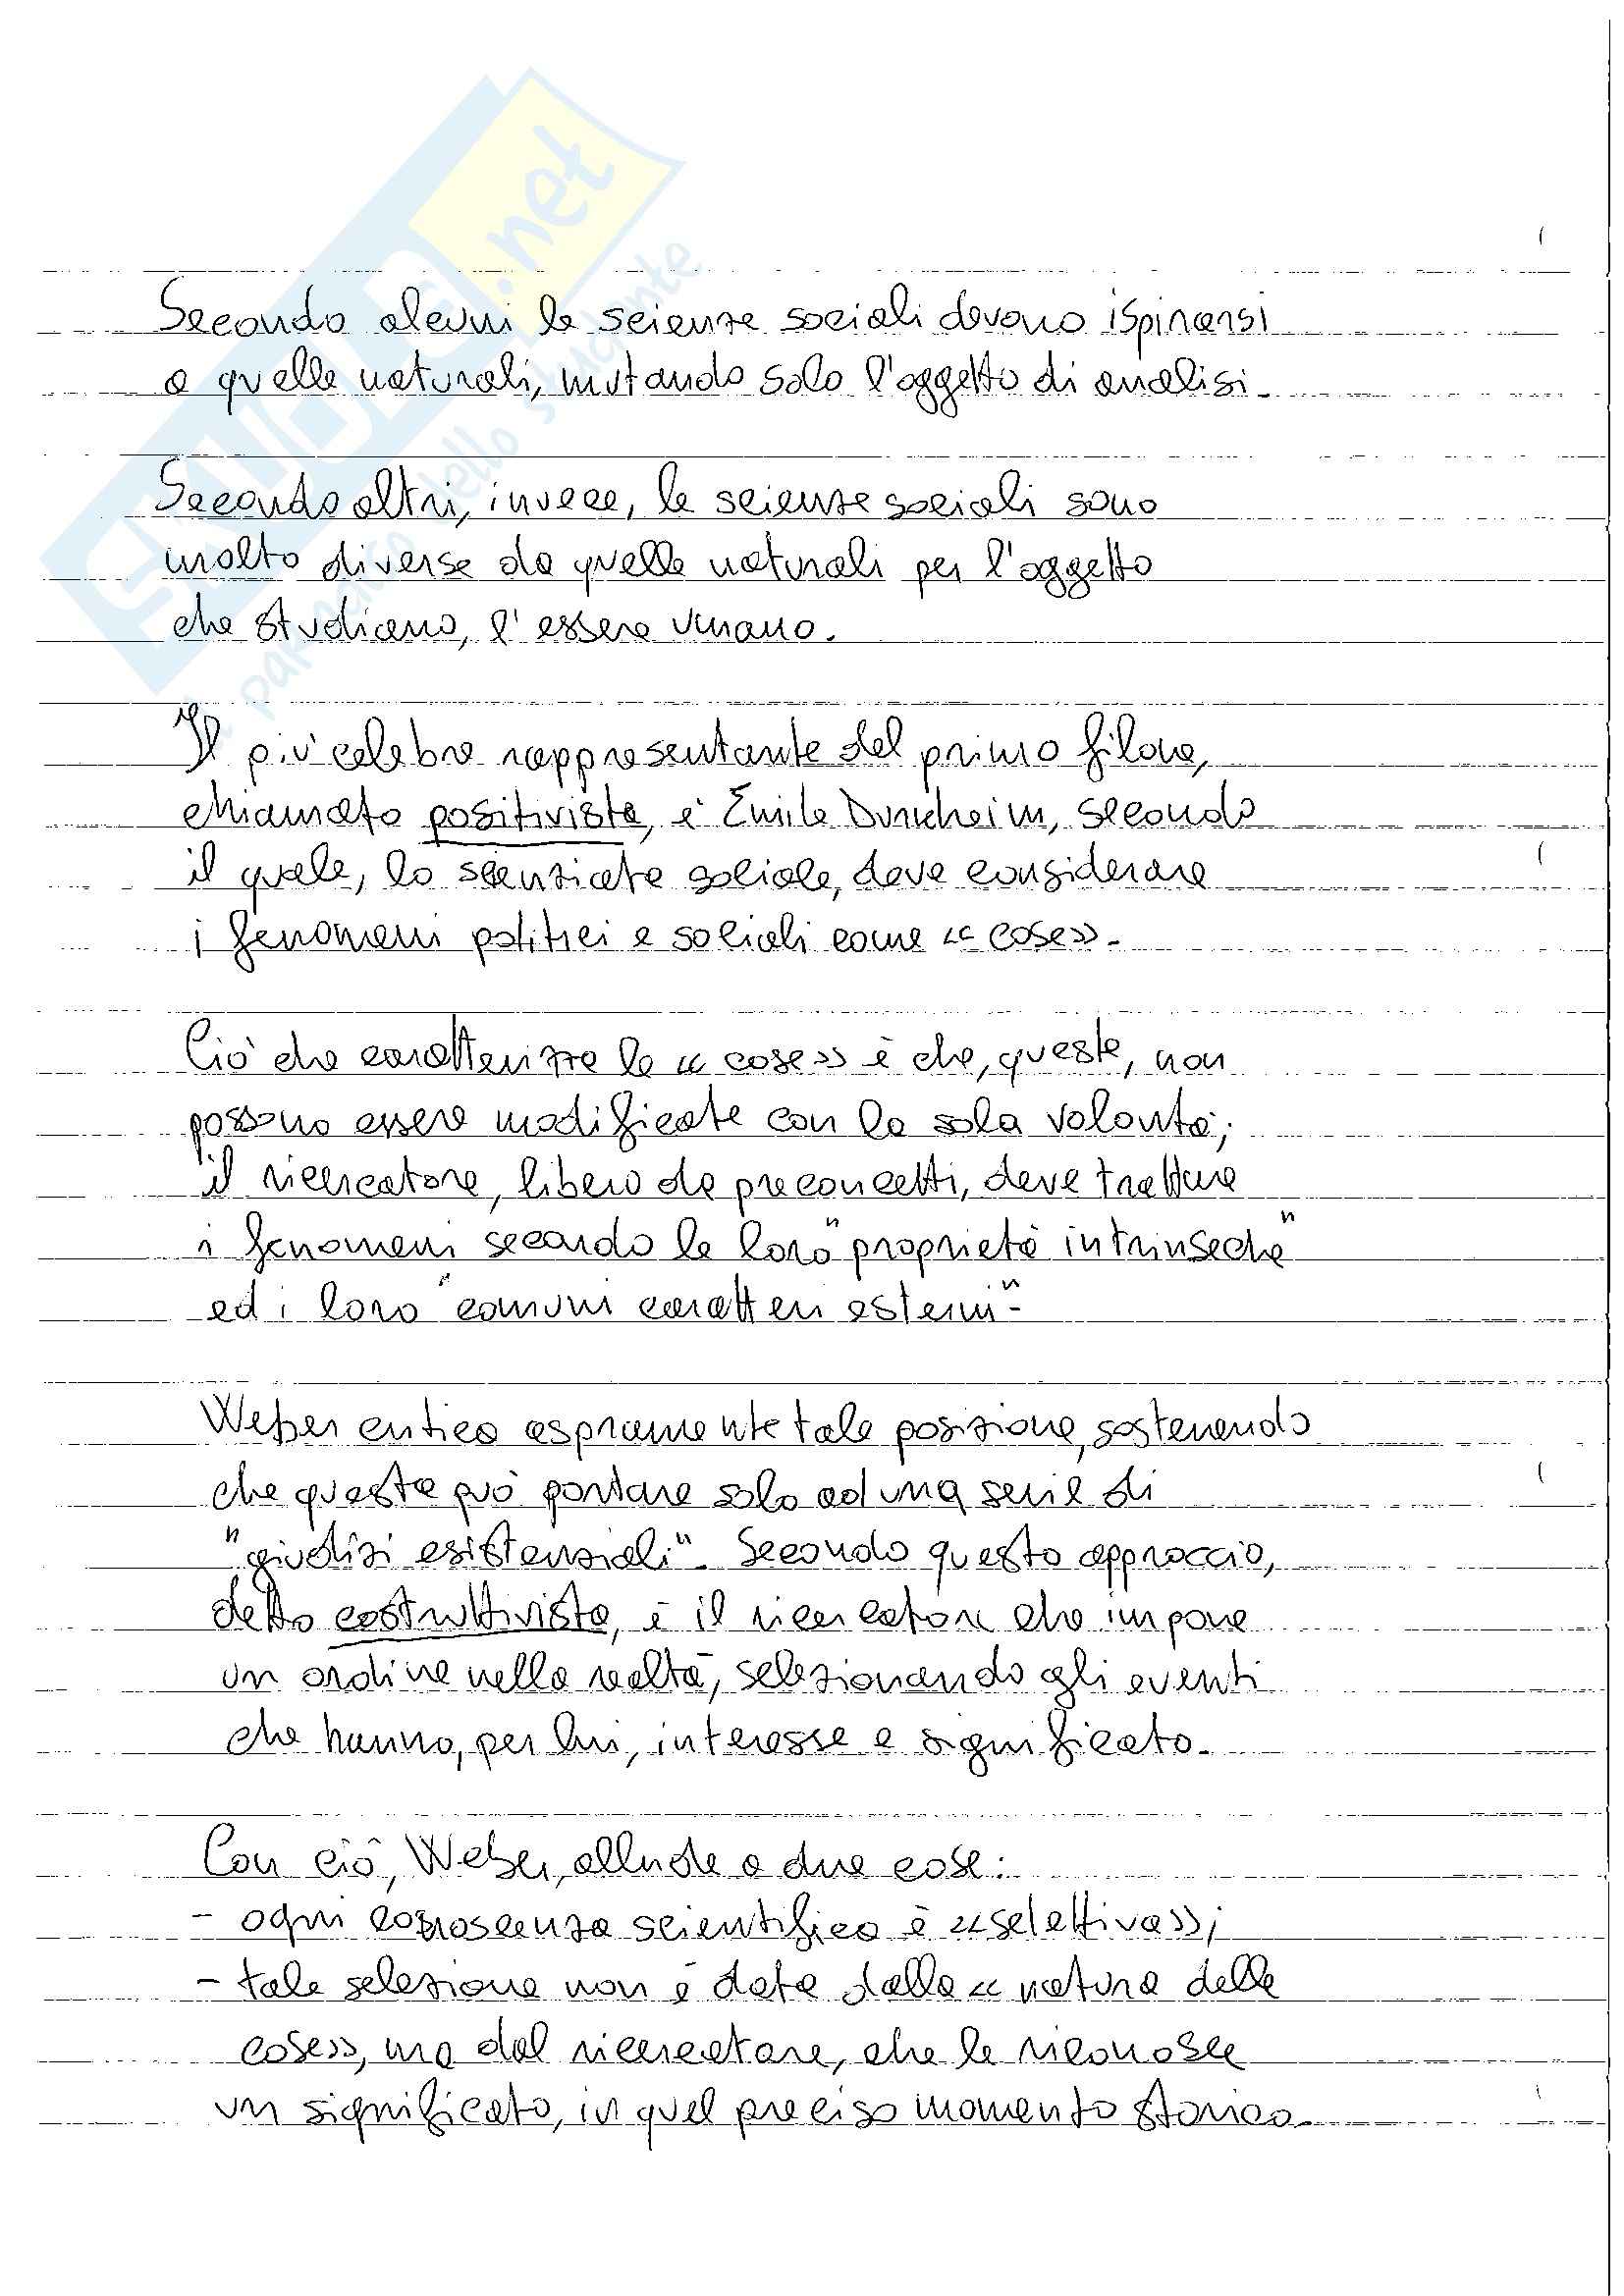 Secondo alcuni le scienze sociali devono ispirarsi
a quelle naturali, mutando solo l'oggetto di analisi.
Secondo altri, invece, le scienze sociali sono
molto diverse da quelle naturali per l'oggetto
che studiano, l'essere umano.
Il più celebre rappresentante del primo filone,
chiamato positivista, è Emile Durkheim, secondo
il quale, lo scienziato sociale, deve considerare
i fenomeni politici e sociali come «cose».
Ciò che caratterizza le «cose» è che, queste, non
possono essere modificate con la sola volontà;
il ricercatore, libero da preconcetti, deve trattare
i fenomeni secondo le loro "proprietà intrinseche"
ed i loro "comuni caratteri esterni".
Weber critica aspramente tale posizione, sostenendo
che questa può portare solo ad una serie di
"giudizi esistenziali". Secondo questo approccio,
detto costruttivista, è il ricercatore che impone
un ordine nella realtà, selezionando gli eventi
che hanno, per lui, interesse e significato.
Con ciò, Weber, allude a due cose:
- ogni conoscenza scientifica è «selettiva»;
- tale selezione non è data dalla «natura delle
cose», ma dal ricercatore, che le riconosce
un significato, in quel preciso momento storico.
.net
il paradiso dello studente